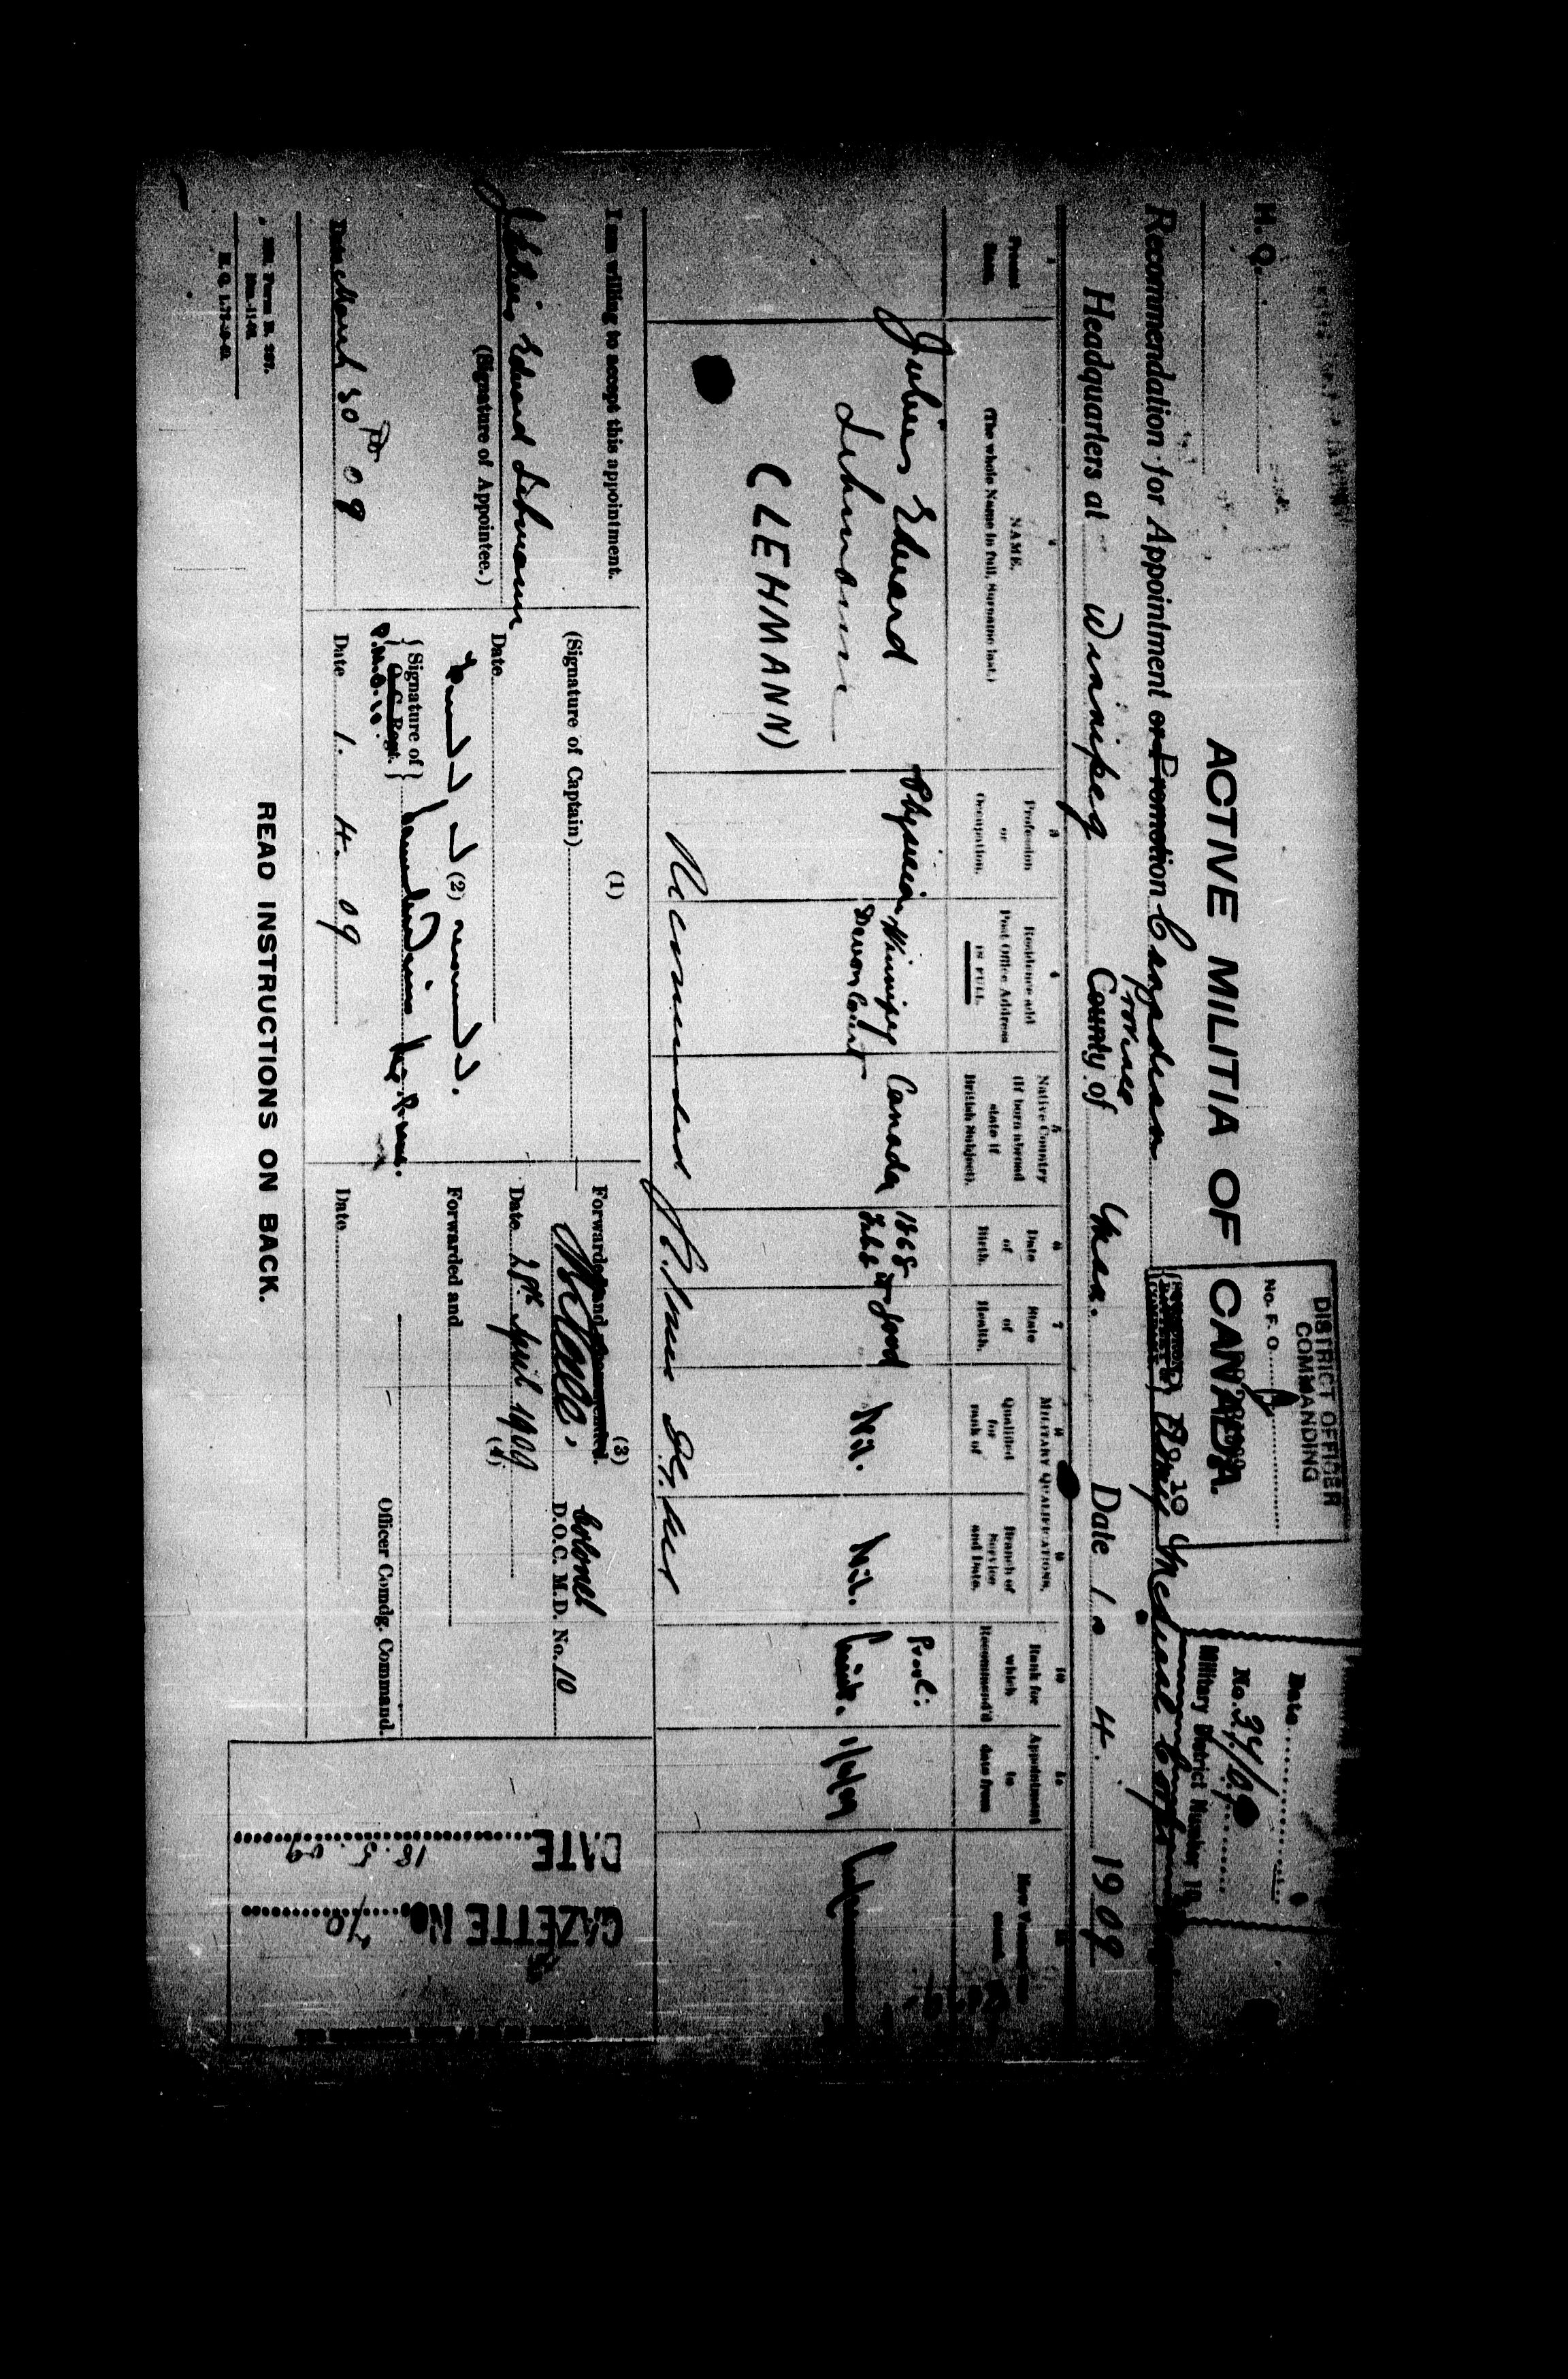 H. Q.
DISTRICT OFFICER
COMMANDING
No. F. O.
Date
No. 34/09
Military District Number 10
ACTIVE MILITIA OF CANADA.
Recommendation for Appointment or Promotion Canadian Army Medical Corps
Province
Headquarters at Winnipeg County of Man. Date 1. 4. 1909
1
Present
Rank.
2
NAME.
(The whole Name in full, Surname last.)
3
Profession
or
Occupation.
4
Residence and
Post Office Address
IN FULL.
5
Native Country
(If born abroad
state if
British Subject).
6
Date
of
Birth.
7
State
of
Health.
MILITARY QUALIFICATIONS.
8
Qualified
for
rank of
9
Branch of
Service
and Date.
10
Rank for
which
Recommend'd
Appointment
to
date from
Julius Edward
Lehmann
(LEHMANN)
Physician
Winnipeg
Devon Court
Canada
1868
Good
Nil.
Nil.
Provl:
Lieut.
1/4/09
Recommended
I am willing to accept this appointment.
Julius Edward Lehmann
(Signature of Appointee.)
Date March 30th 09
(1)
(Signature of Captain)
Date
(2)
Signature of
O. C. Regt.
P.M.O. 10.
Date 1. 4. 09
(3)
Forwarded and
Colonel
D.O.C. M.D. No. 10
Date 28th April 1909
(4)
Forwarded and
Officer Comdg. Command.
Date
DATE 18.5.09
GAZETTE No. 70
READ INSTRUCTIONS ON BACK.